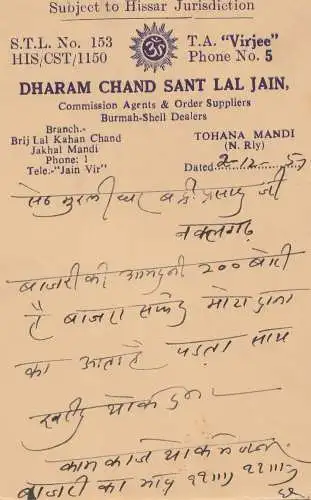 Subject to Hissar Jurisdiction
S.T.L. No. 153
HIS/CST/1150
ॐ
T.A. "Virjee"
Phone No. 5
DHARAM CHAND SANT LAL JAIN,
Commission Agents & Order Suppliers
Burmah-Shell Dealers
Branch.-
Brij Lal Kahan Chand
Jakhal Mandi
Phone: 1
Tele:-"Jain Vir"
TOHANA MANDI
(N. Rly)
Dated 2-12-57
सेठ मुरलीधर बद्री प्रसाद जी
बाजरी की आमदनी 200 बोरी
है बाजरा सफेद मोटा दाना
का आता है पड़ता साथ
खरीद
काम काज
बाजरी का भाव